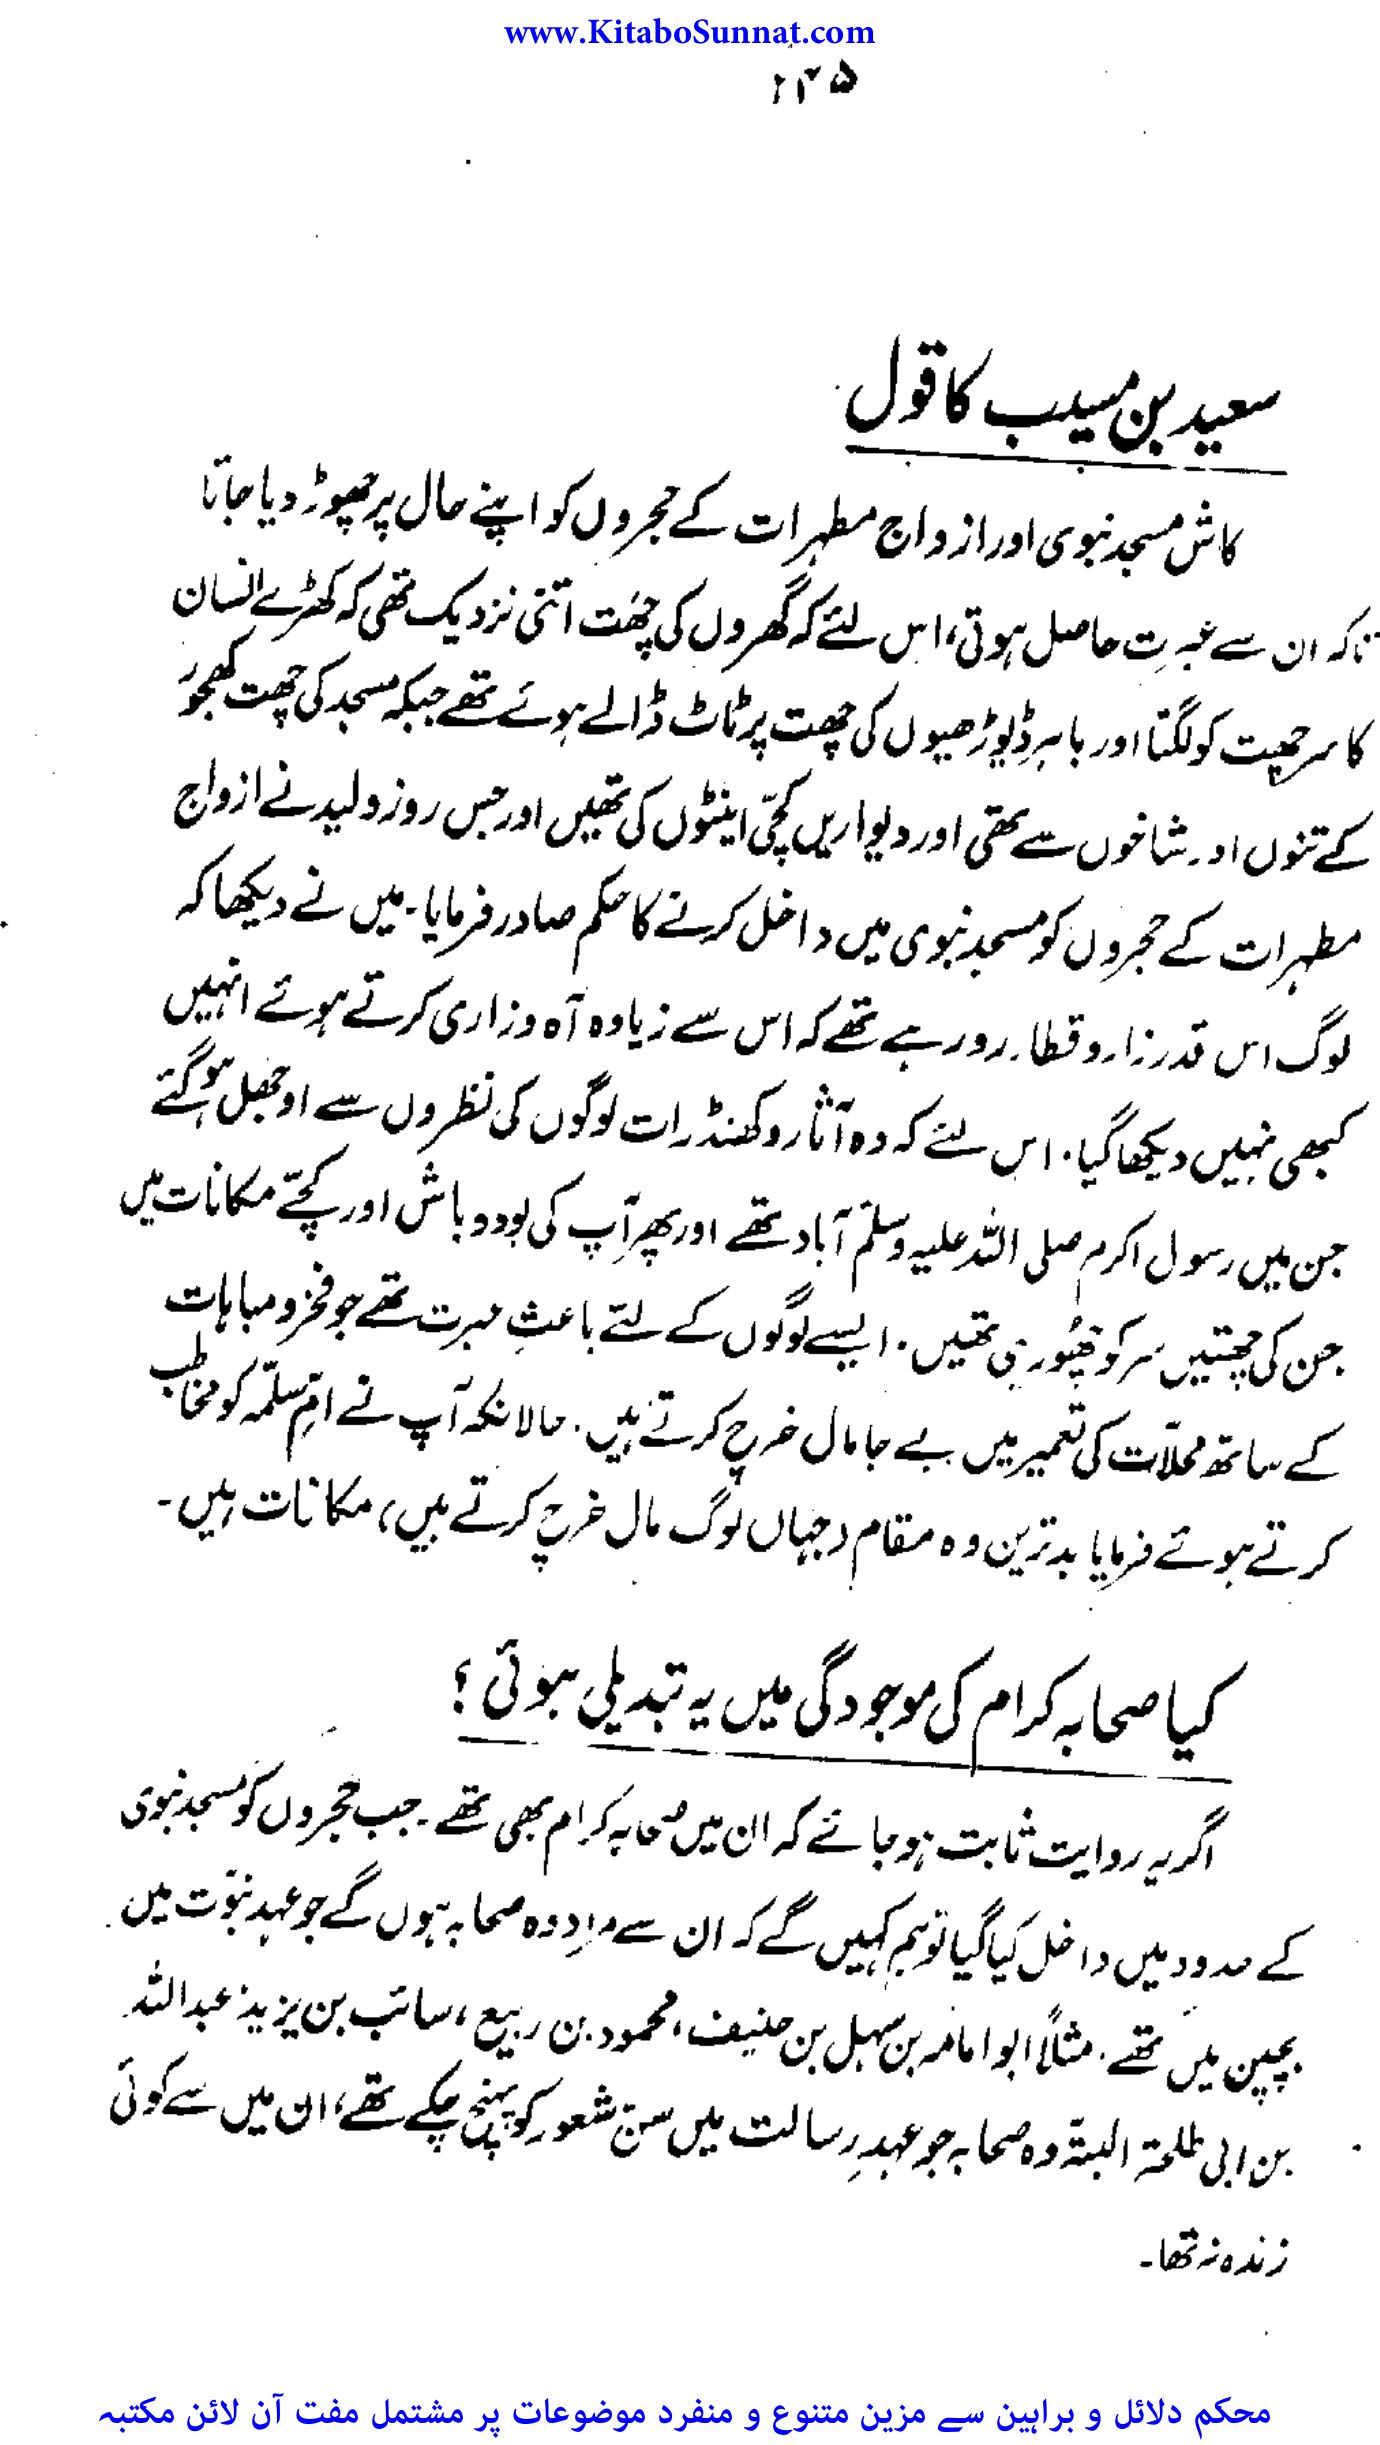 www.KitaboSunnat.com
۱۴۵
سعید بن مسیب کا قول
کاش مسجد نبوی اور ازواج مطہرات کے حجروں کو اپنے حال پر چھوڑ دیا جاتا
تاکہ ان سے عبرت حاصل ہوتی، اس لئے کہ گھروں کی چھت اتنی نزدیک تھی کہ کھڑے انسان
کا سر چھت کو لگتا اور باہر ڈیوڑھیوں کی چھت پر ٹاٹ ڈالے ہوئے تھے جبکہ مسجد کی چھت کھجور
کے تنوں اور شاخوں سے تھی اور دیواریں کچی اینٹوں کی تھیں اور جس روز ولید نے ازواج
مطہرات کے حجروں کو مسجد نبوی میں داخل کرنے کا حکم صادر فرمایا۔ میں نے دیکھا کہ
لوگ اس قدر زار و قطار رو رہے تھے کہ اس سے زیادہ آہ و زاری کرتے ہوئے انہیں
کبھی نہیں دیکھا گیا. اس لئے کہ وہ آثار و کھنڈرات لوگوں کی نظروں سے اوجھل ہو گئے
جن میں رسول اکرم صلی اللہ علیہ وسلم آباد تھے اور پھر آپ کی بود و باش اور کچے مکانات میں
جن کی چھتیں سر کو چھُو رہی تھیں. ایسے لوگوں کے لئے باعثِ عبرت تھے جو فخر و مباہات
کے ساتھ محلّات کی تعمیر میں بے جا مال خرچ کرتے ہیں. حالانکہ آپ نے امّ سلمہ کو مخاطب
کرتے ہوئے فرمایا بدترین وہ مقام (جہاں لوگ مال خرچ کرتے ہیں) مکانات ہیں۔
کیا صحابہ کرام کی موجودگی میں یہ تبدیلی ہوئی ؟
اگر یہ روایت ثابت ہو جائے کہ ان میں صحابہ کرام بھی تھے۔ جب حجروں کو مسجد نبوی
کے حدود میں داخل کیا گیا تو ہم کہیں گے کہ ان سے مراد وہ صحابہ ہوں گے جو عہد نبوّت میں
بچپن میں تھے. مثلاً ابو امامہ بن سہل بن حنیف، محمود بن ربیع، سائب بن یزید، عبداللہ
بن ابی طلحۃ البتّہ وہ صحابہ جو عہدِ رسالت میں سنِ شعور کو پہنچ چکے تھے، ان میں سے کوئی
زندہ نہ تھا۔
محکم دلائل و براہین سے مزین متنوع و منفرد موضوعات پر مشتمل مفت آن لائن مکتبہ